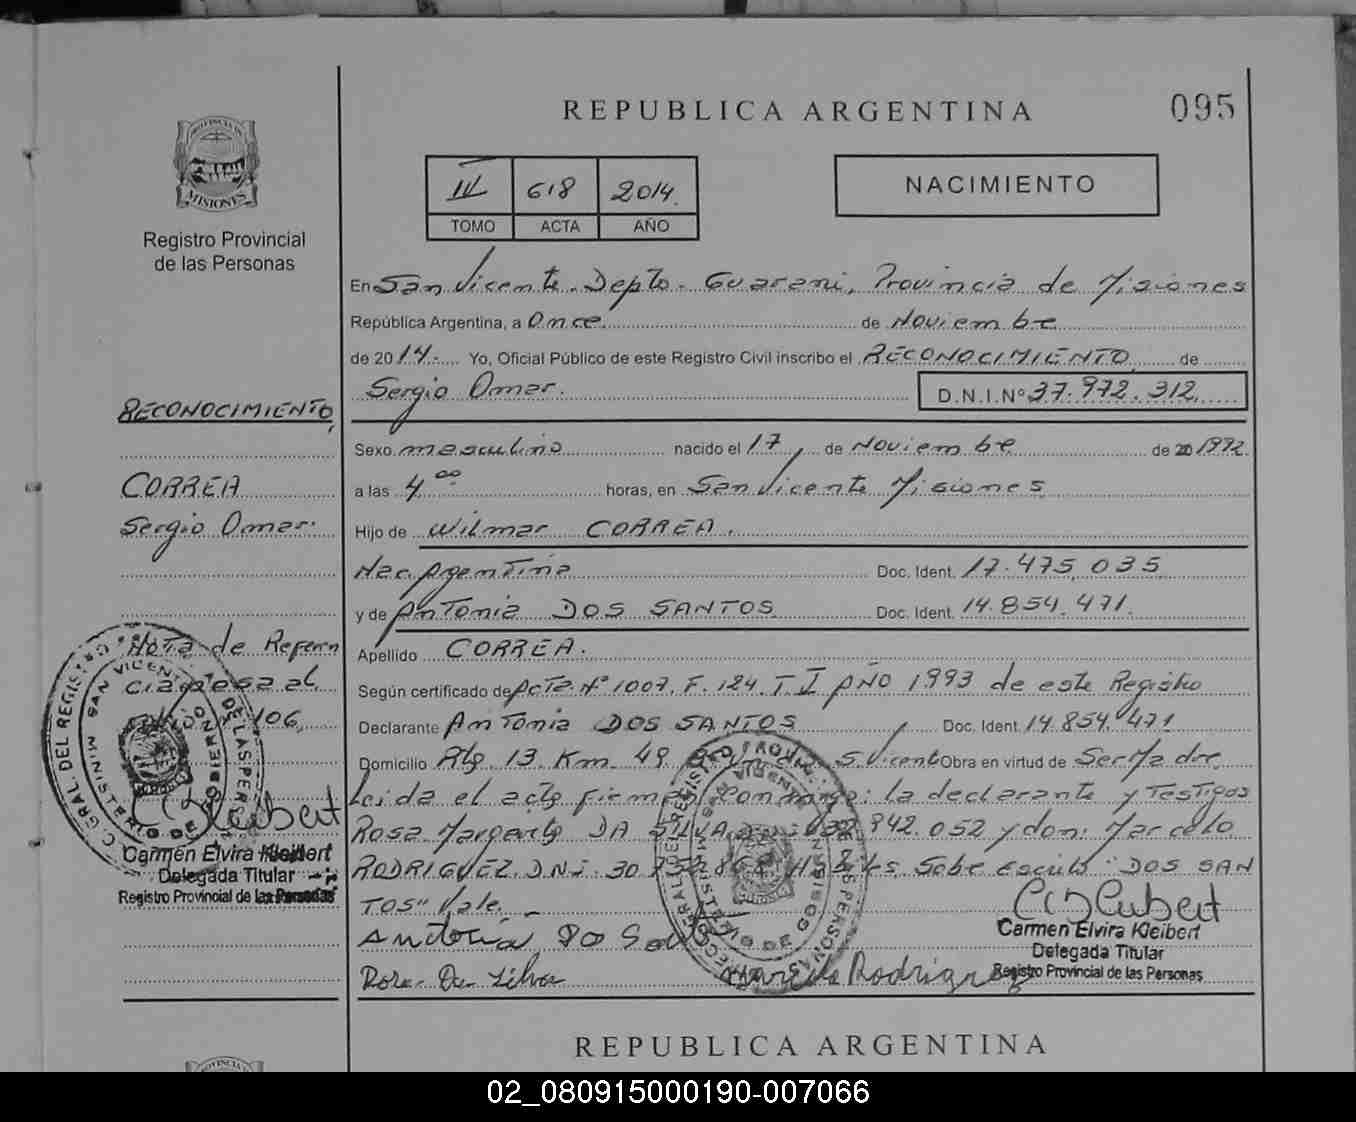 REPUBLICA ARGENTINA
095
PROVINCIA DE
MISIONES
Registro Provincial
de las Personas
IV 618 2014
TOMO ACTA AÑO
NACIMIENTO
En San Vicente - Depto - Guarani, Provincia de Misiones
República Argentina, a Once de Noviembre
de 2014.- Yo, Oficial Público de este Registro Civil inscribo el RECONOCIMIENTO de
Sergio Omar. D.N.I.Nº 37.972.312
Sexo masculino nacido el 17 de Noviembre de 20 1992
a las 4 00 horas, en San Vicente Misiones
Hijo de Wilmar CORREA.
Nac. Argentina Doc. Ident. 17.475.035
y de Antonia DOS SANTOS Doc. Ident. 14.854.471.
Apellido CORREA.
Según certificado de Acta Nº 1007. F. 124. T. I AÑO 1993 de este Registro
Declarante Antonia DOS SANTOS Doc. Ident. 14.854.471
Domicilio Rta. 13 Km. 49 S. Vicente Obra en virtud de Ser Madre
Leida el acta firman conmigo: la declarante y Testigos
Rosa Margarita DA SILVA 942.052 y don: Marcelo
RODRIGUEZ. D.N.I. 30 Sobre Escrito: "DOS SAN
TOS" Vale.
Antonia Do
Rosa Da Silva
Marcelo Rodriguez
Carmen Elvira Kleibert
Delegada Titular
Registro Provincial de las Personas
RECONOCIMIENTO,
CORREA
Sergio Omar.
Nota de Referen
cia pasa al
106,
Carmen Elvira Kleibert
Delegada Titular
Registro Provincial de las Personas
REPUBLICA ARGENTINA
02_080915000190-007066